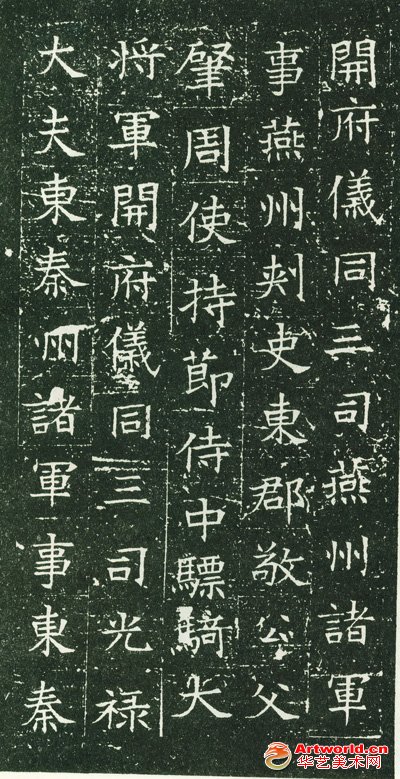 開府儀同三司燕州諸軍
事燕州刾史東郡敬公父
肈周使持節侍中驃騎大
将軍開府儀同三司光祿
大夫東秦州諸軍事東秦
Artworld.cn
华艺美术网